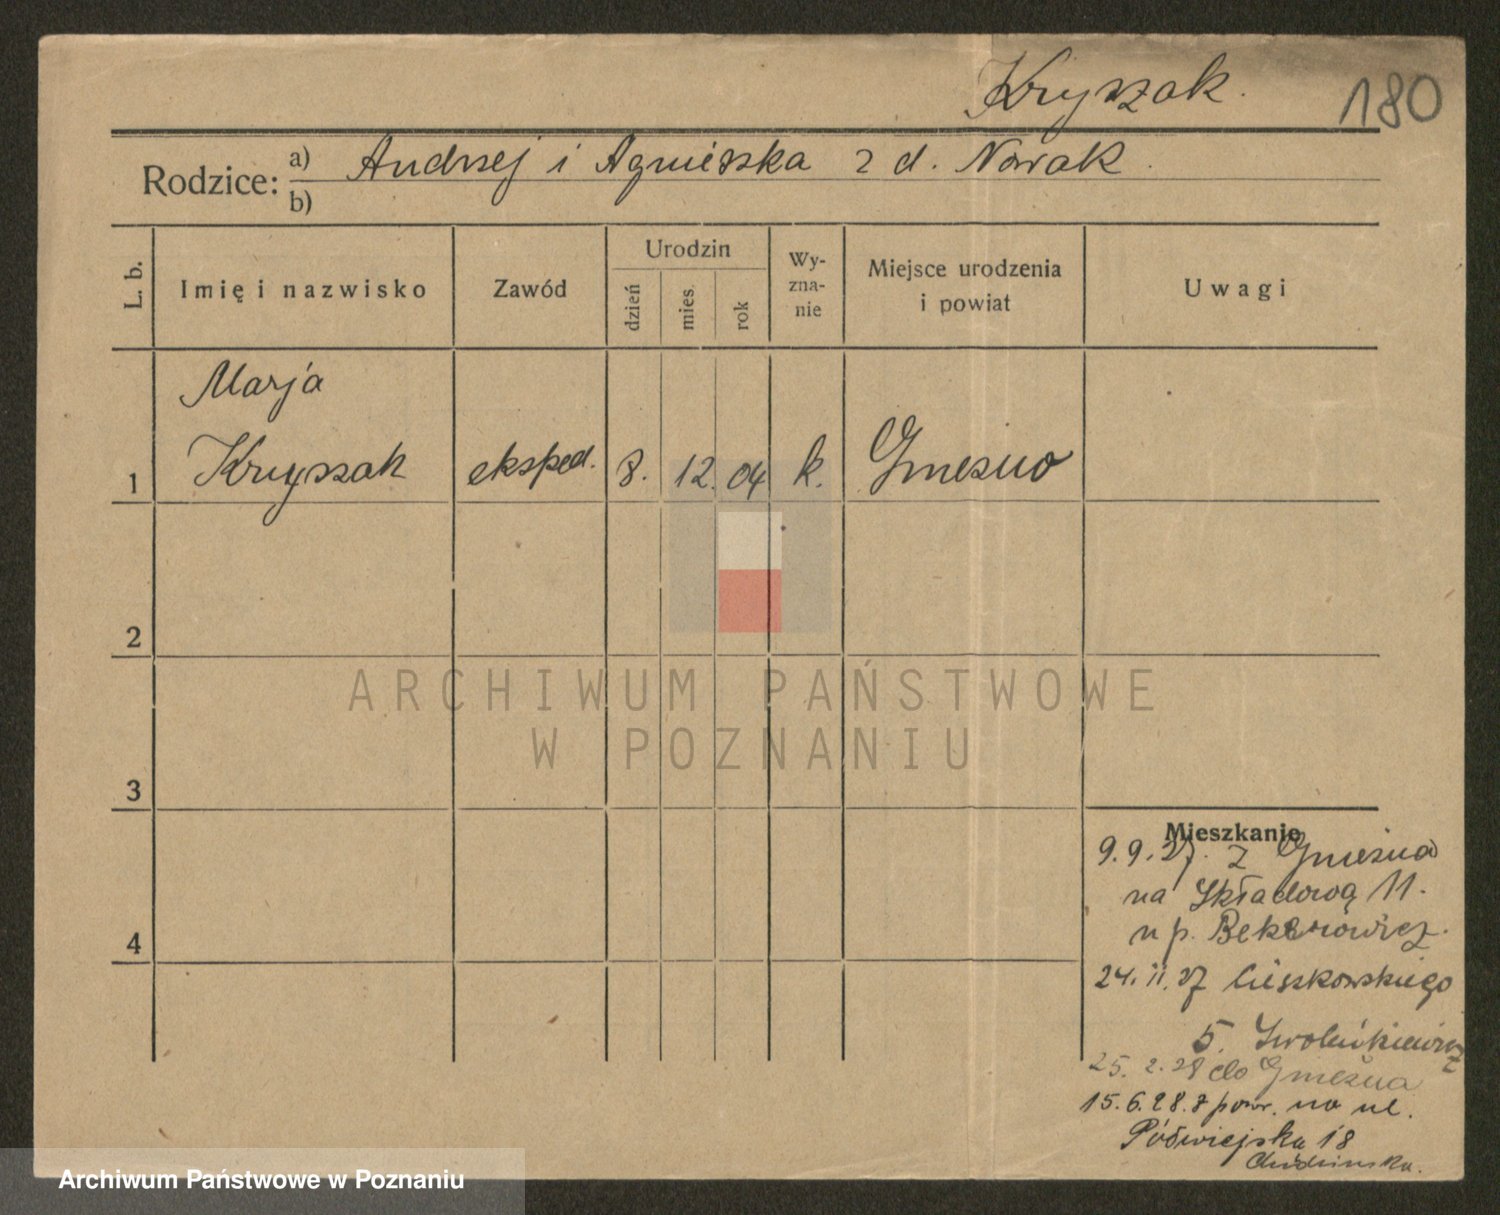 Kryszak.
180
Rodzice: a) Andrzej i Agnieszka z d. Nowak.
b)
L. b.
Imię i nazwisko
Zawód
Urodzin
dzień
mies.
rok
Wy-
zna-
nie
Miejsce urodzenia
i powiat
Uwagi
Marja
1 Kryszak eksped. 8. 12. 04 k. Gniezno
2
3
4
ARCHIWUM PAŃSTWOWE
W POZNANIU
Mieszkanie
9.9.27. z Gniezna
na Składową 11.
u p.
24.11.27 Cieszkowskiego
5.
25.2.28 do Gniezna
15.6.28. z powr. na ul.
Półwiejska 18
Archiwum Państwowe w Poznaniu